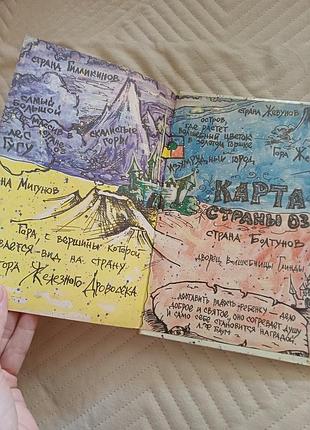 СТРАНА ГИЛЛИКИНОВ
САМЫЙ
БОЛЬШОЙ
ЛЕС
ГУГУ
СКАЛИСТЫЕ
ГОРЫ
НА МИГУНОВ
ГОРА, С ВЕРШИНЫ КОТОРОЙ
ВАЕТСЯ ВИД НА СТРАНУ
ГОРА ЖЕЛЕЗНОГО ДРОВОСЕКА
СТРАНА ЖЕВУНОВ
ОСТРОВ,
ГДЕ РАСТЕТ
ВОЛШЕБНЫЙ ЦВЕТОК
В ЗОЛОТОМ ГОРШКЕ
ГОРА Ж
ИЗУМРУДНЫЙ ГОРОД
КАРТА
СТРАНЫ ОЗ
СТРАНА БОЛТУНОВ
ДВОРЕЦ ВОЛШЕБНИЦЫ ГЛИНДЫ
ДОСТАВИТЬ РАДОСТЬ РЕБЕНКУ - ДЕЛО
ДОБРОЕ И СВЯТОЕ, ОНО СОГРЕВАЕТ ДУШУ
И САМО СЕБЕ СТАНОВИТСЯ НАГРАДОЙ.
Л.Ф. БАУМ